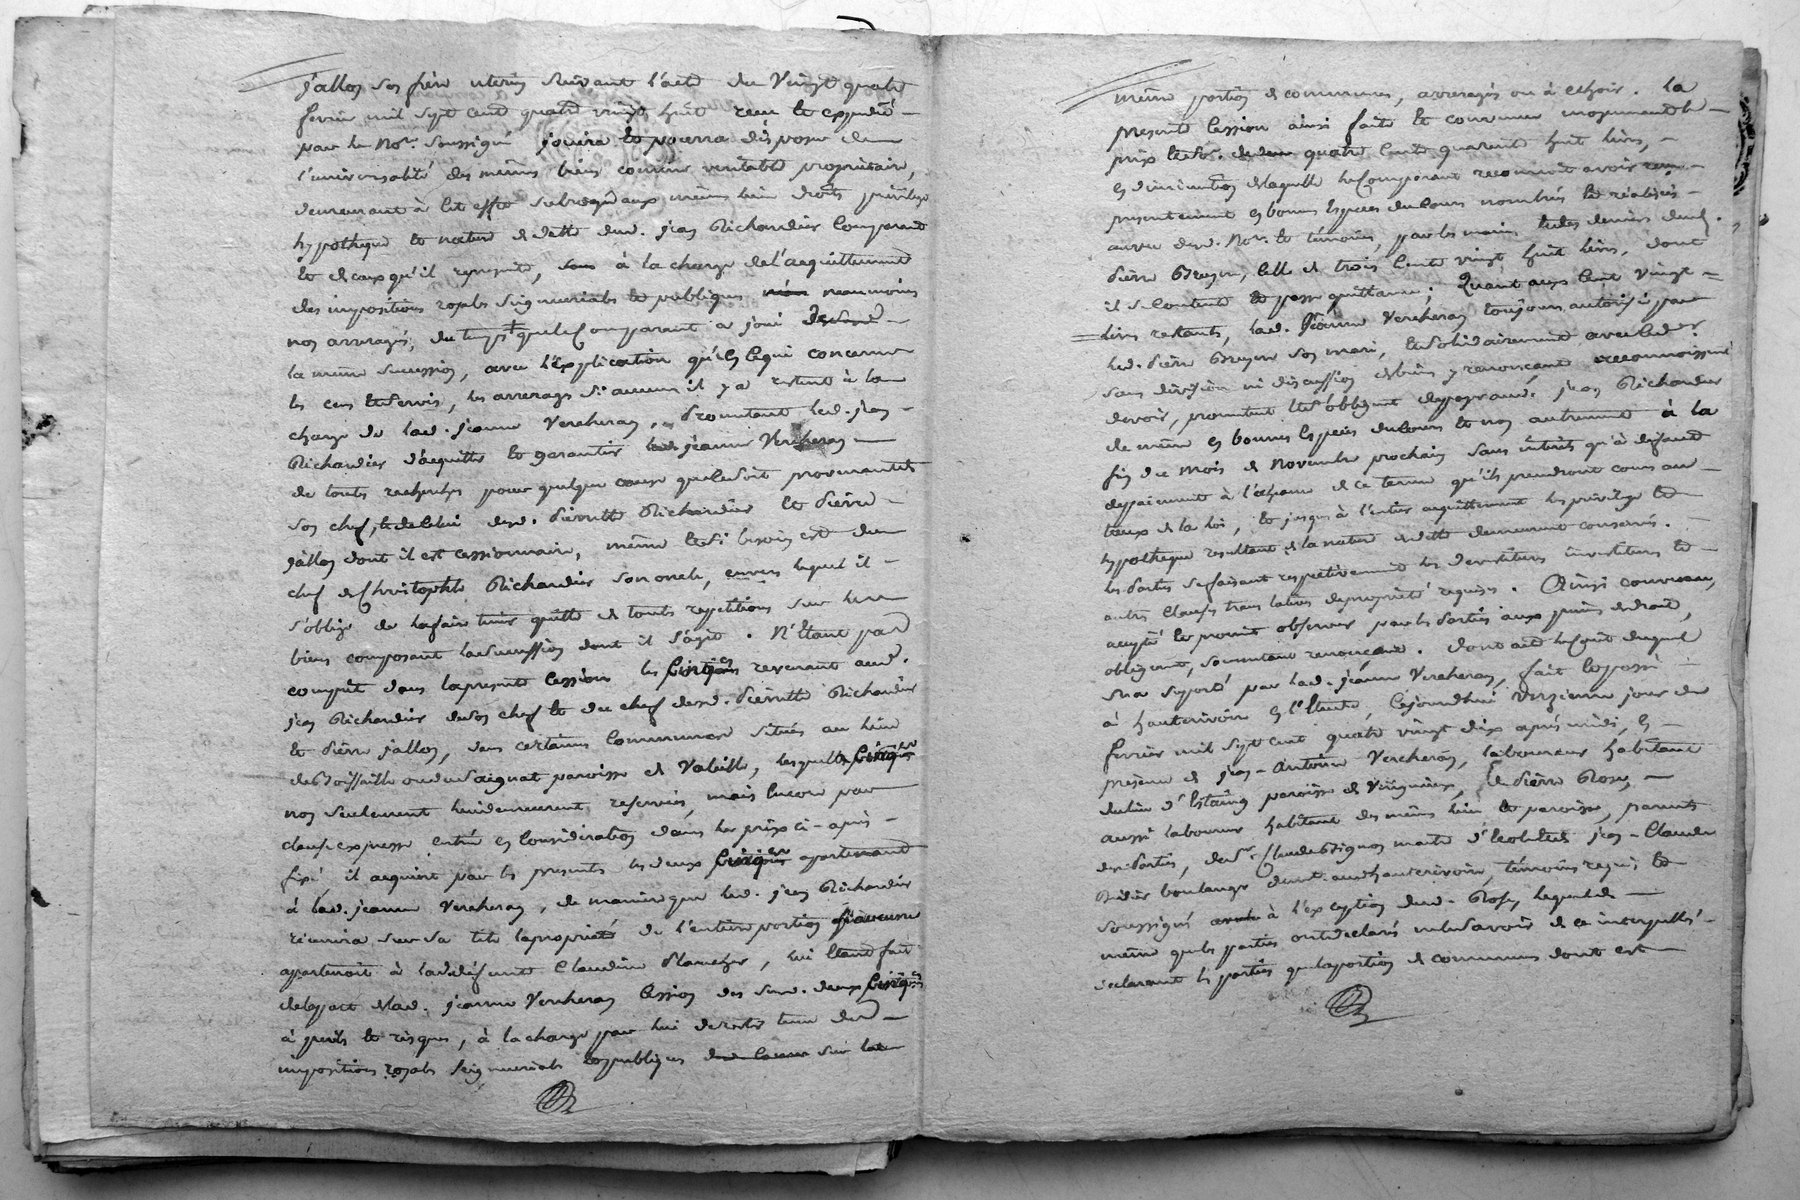 jallon son frère uterin suivant l'acte du Vingt quatre
fevrier mil sept cent quatre vingt huit receu et expedié
par le No.re soussigné jouira et pourra disposer de
l'universalité des mêmes biens comme veritable proprietaire,
demeurant à cet effet subrogé aux mêmes lieu droits privilege
hypotheque et nature de dette dud. jean Richardier comparant
et de ceux qu'il represente, à la charge de l'acquittement
des impositions royales seigneuriales et publiques neanmoins
non arreragés, du temps que le Comparant a joui
la même succession, avec l'explication qu'en ce qui concerne
les cens et servis, les arrerages si aucun il y a restent à la
charge de lad. jeanne Vercheran, Promettant led. jean
Richardier d'acquitter et garantir jeanne Vercheran
de touts recherches pour quelque cause que ce soit provenantes
son chef, et de celui dud. Pierrette Richardier et Pierre
jallon dont il est cessionnaire, même et si besoin est du
chef de Christophle Richardier son oncle, envers lequel il
s'oblige de la faire tenir quitte de touts repetitions sur les
biens composant la succession dont il s'agit. N'etant pas
compris dans la presente Cession les revenant aud.
jean Richardier de son chef et du chef desd. Pierrette Richardier
et Pierre jallon, dans certaines Communaux situés au lieu
de paroisse de Valeille, lesquelles
non seulement lui demeurent reservées, mais encore par
clause expresse entrée en Consideration dans les prix ci-après
fixé, il acquiert par les presentes les deux appartenant
à lad. jeanne Vercheran, de maniere que led. jean Richardier
réunira sur sa tête la propriété de l'entiere portion
appartenoit à lad. défunte Claudine, lui etant fait
de la part de lad. jeanne Vercheran Cession des susd. deux
à perils et risques, à la charge par lui de
impositions royales seigneuriales et publiques sur la
même portion de communes, arreragés ou à echoir. La
presente Cession ainsi faite et convenue moyennant le
prix et so.e quatre Cents quarante huit livres,
en diminution de laquelle le Comparant reconnoit avoir
presentement en bonnes Especes du Cours nombrées et réalisées
au veu dud. No.re et témoins, par les mains et des deniers dud.
Pierre, celle de trois Cents vingt huit livres, dont
il se Contente et passe quittance; Quant aux Cent vingt
livres restants, lad. Jeanne Vercheran toujours autorisée par
led. Pierre son mari, et solidairement avec led.
sans division ni discussion de biens y renonçant reconnoissent
devoir, promettent et s'obligent de payer aud. jean Richardier
de même en bonnes Especes du Cours et non autrement à la
fin du mois de Novembre prochain sans interets qu'à defaut
de paiement à l'echeance de ce terme qu'ils prendront cours au
taux de la loi, et jusques à l'entier acquittement les privilege et
hypotheque resultant de la nature de dette demeurent conservés.
les Parties se faisant respectivement les devestitures investitures et
autres Clauses translatives de propriété requises. Ainsi convenu,
accepté et promis observer par les Parties aux peines de droit,
obligeant, soumettant renonçant. Dont acte le Cout duquel
sera suporté par lad. jeanne Vercheran, fait et passé
à hauterivoire en l'Etude, cejourdhui onzieme jour de
fevrier mil sept cent quatre vingt dix après midi, en
presence de jean-Antoine Vercheran, laboureur habitant
du lieu d'Estaing paroisse de Virigneux, de Pierre
aussi laboureur habitant des mêmes lieu et paroisse, parents
des Parties, de S.r Claude maitre d'Ecole et de jean-Claude
boulanger audit hauterivoire, témoins requis et
soussignés à l'exception dud. lequel de
même que les parties ont declaré ne le savoir de ce interpellés
declarant les parties que la portion de communes dont est